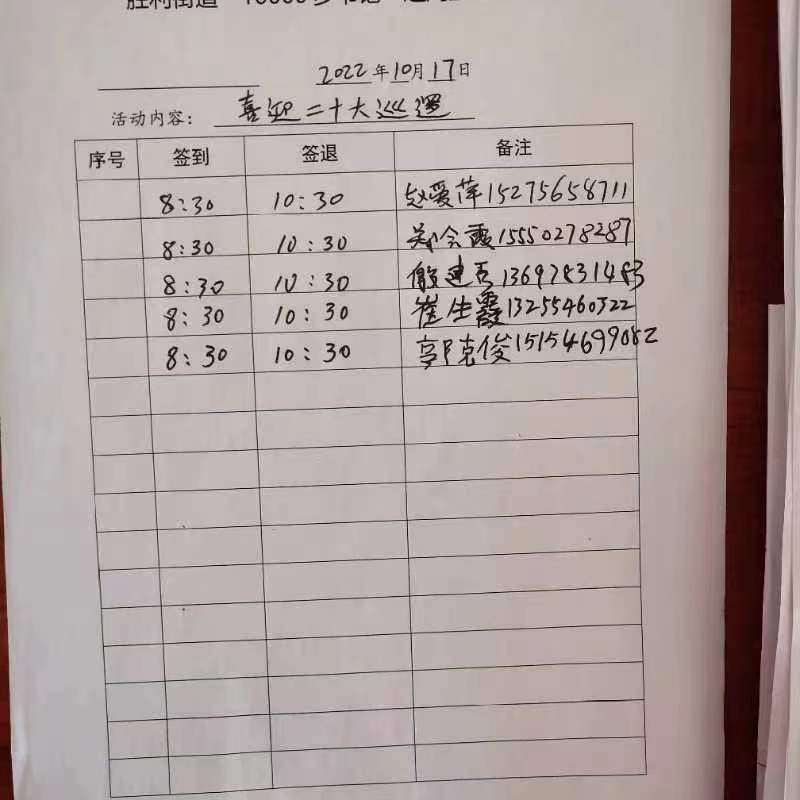 胜利街道 10000步
2022年10月17日
活动内容: 喜迎二十大巡逻
序号 签到 签退 备注
8:30 10:30 赵爱萍15275658711
8:30 10:30 郑会霞15550278287
8:30 10:30 建 13697831483
8:30 10:30 崔生霞13255460322
8:30 10:30 郭克俊15154699082